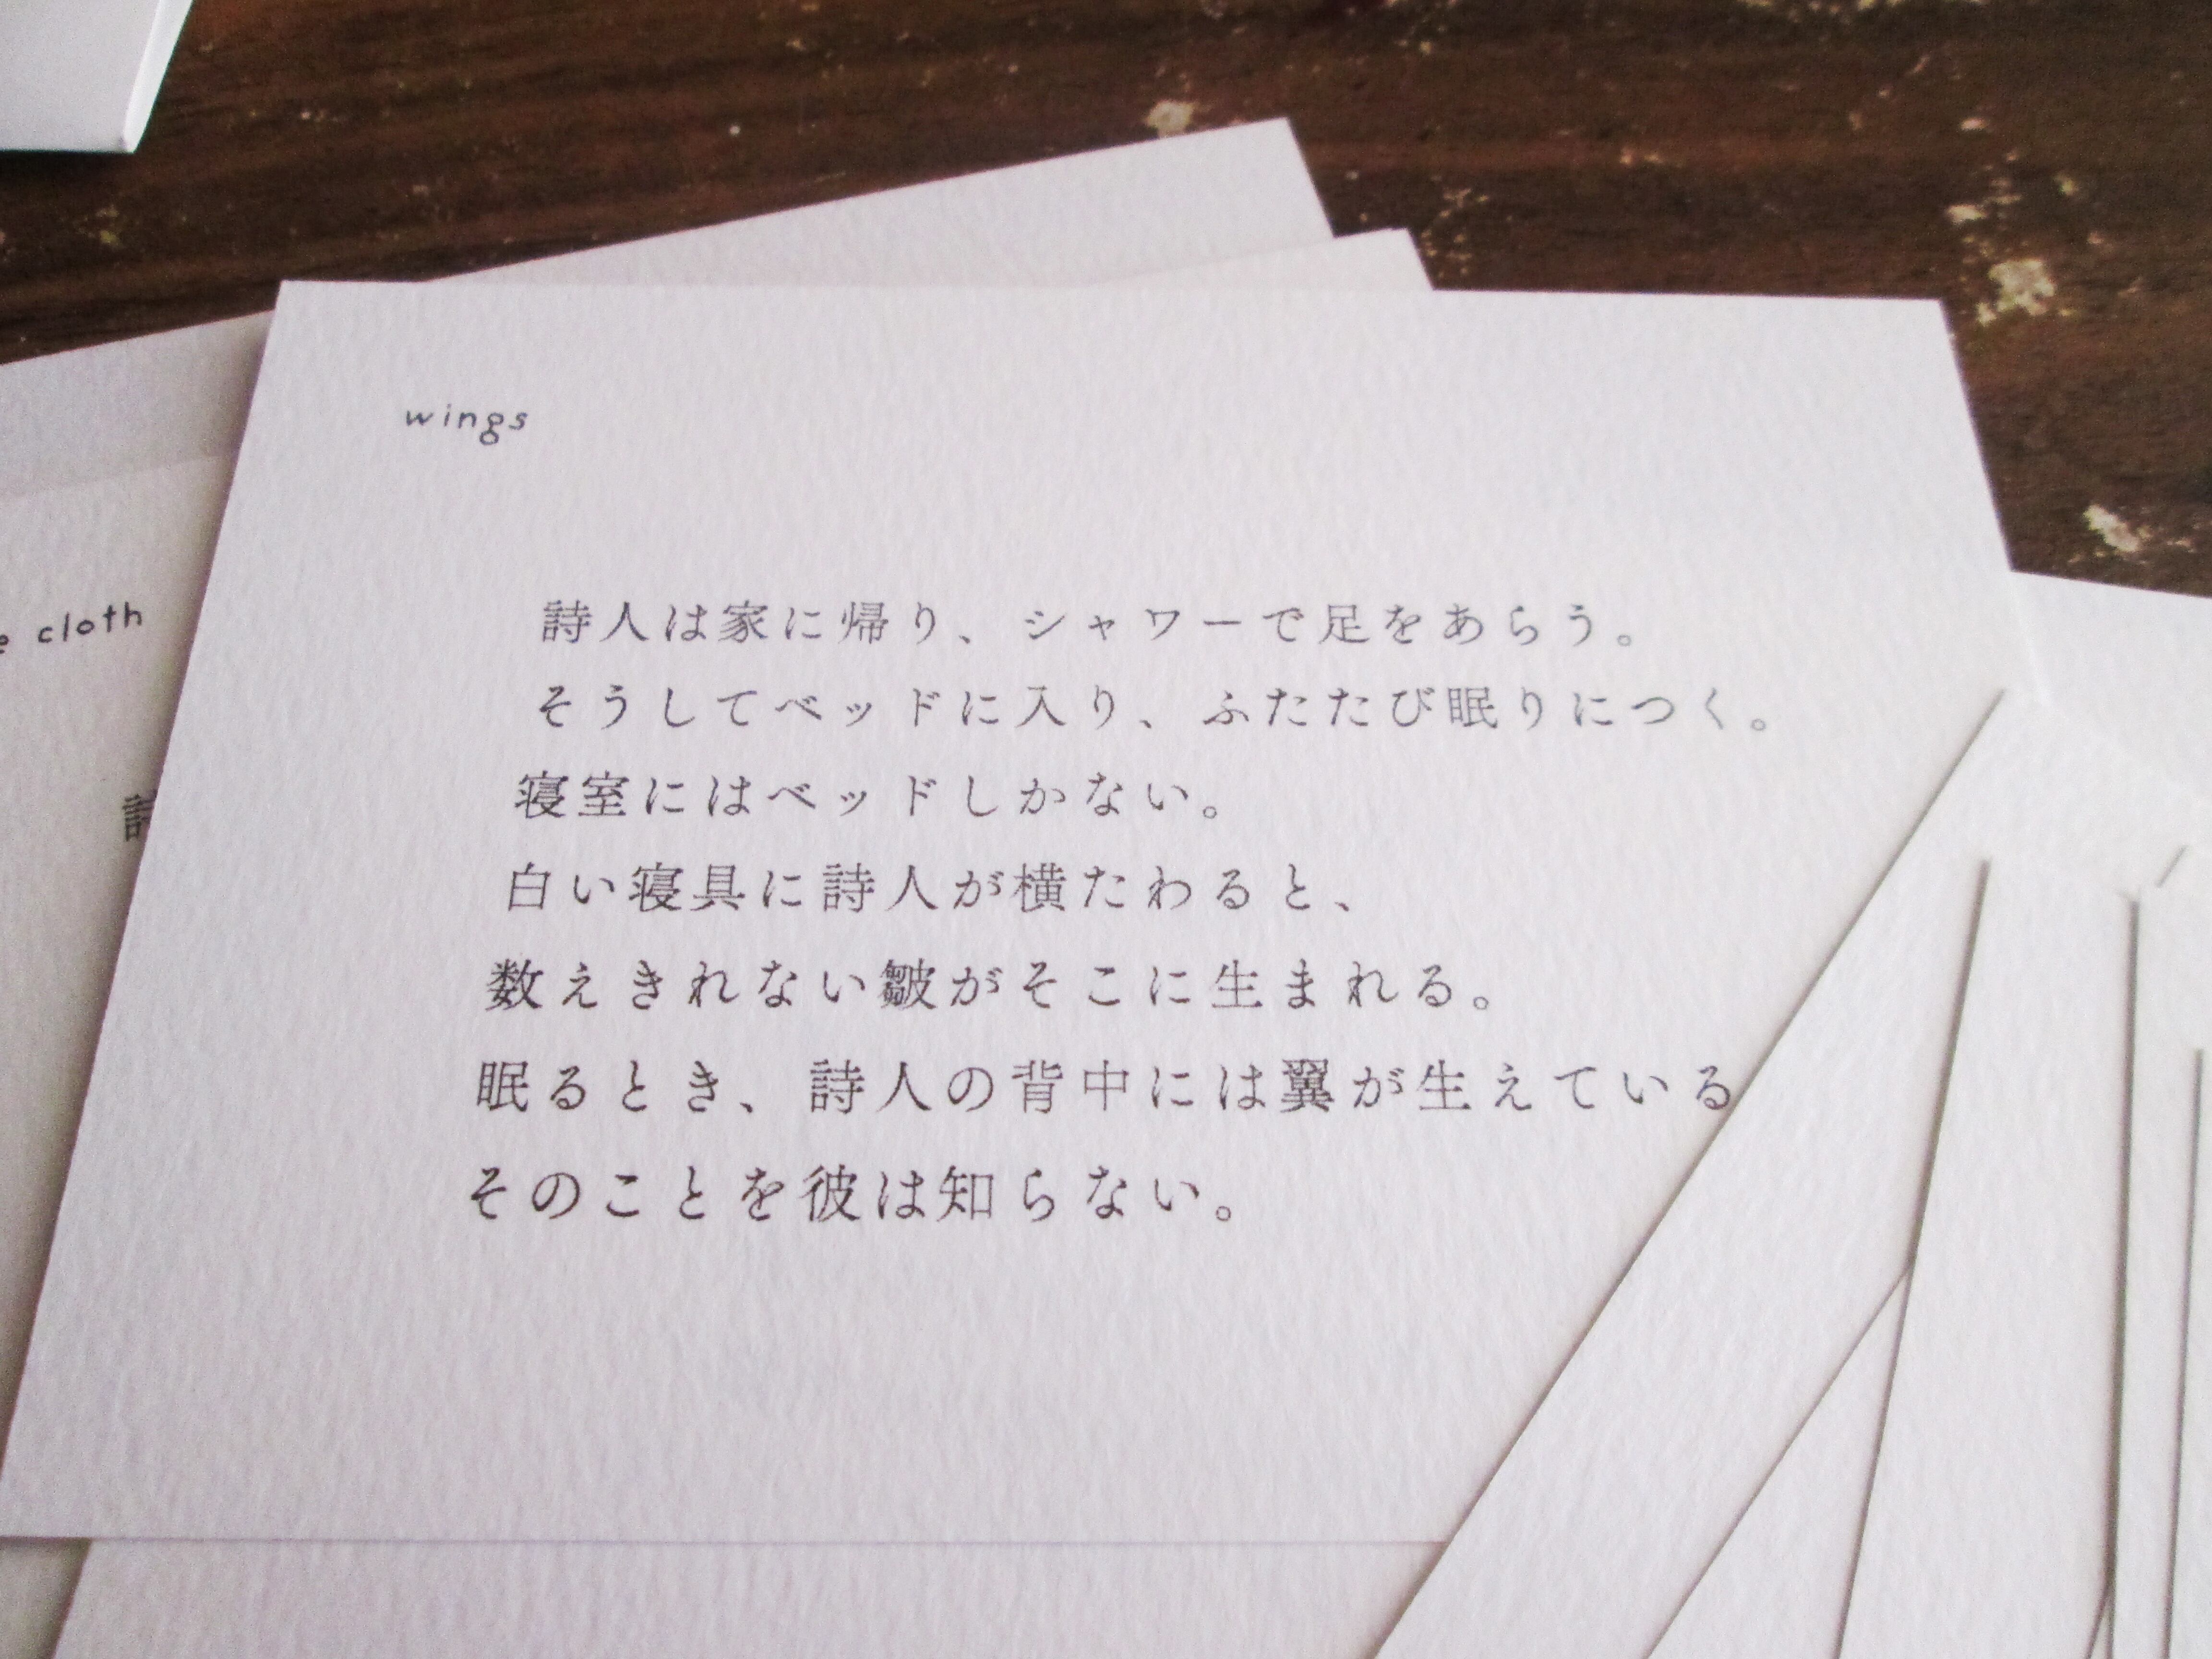 wings
詩人は家に帰り、シャワーで足をあらう。
そうしてベッドに入り、ふたたび眠りにつく。
寝室にはベッドしかない。
白い寝具に詩人が横たわると、
数えきれない皺がそこに生まれる。
眠るとき、詩人の背中には翼が生えている
そのことを彼は知らない。
cloth